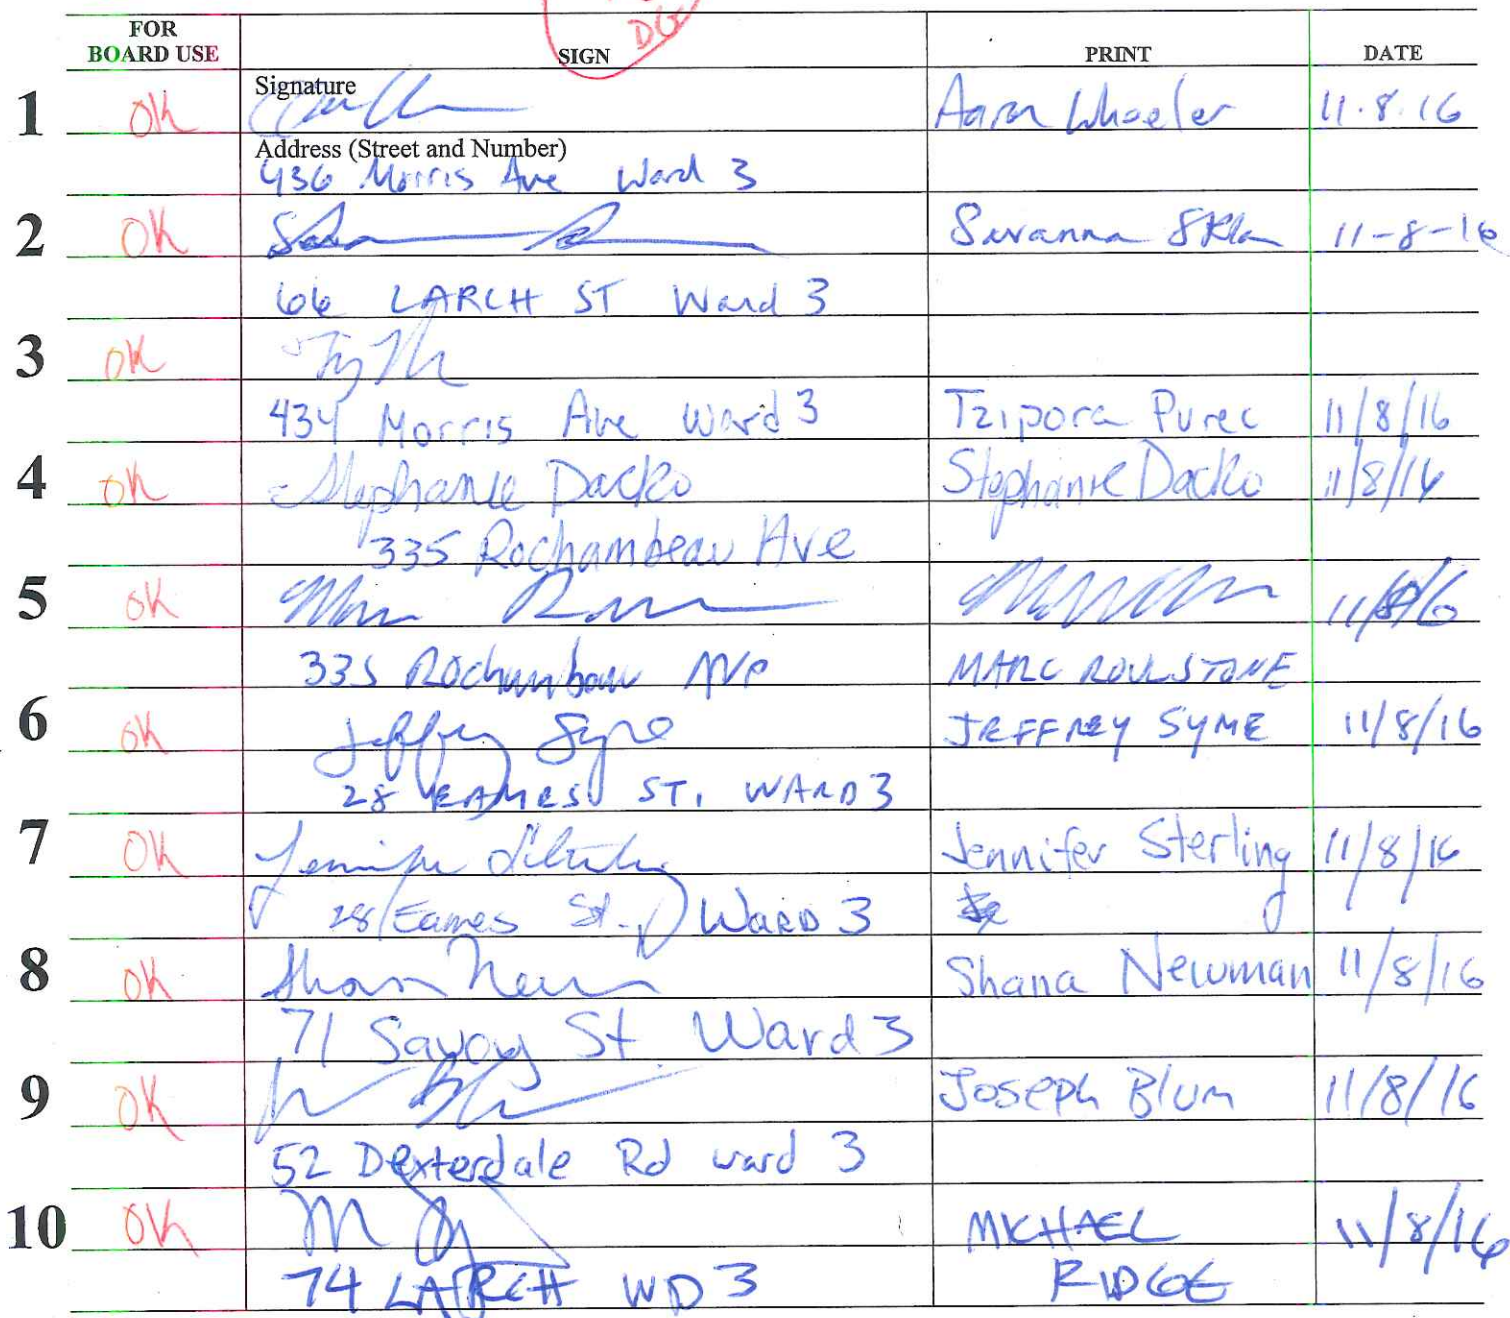 DG
FOR BOARD USE SIGN PRINT DATE
1 OK Signature Aaron Wheeler 11.8.16
Address (Street and Number)
436 Morris Ave Ward 3
2 OK Savanna 11-8-16
66 LARCH ST Ward 3
3 OK
434 Morris Ave Ward 3 Tzipora Purec 11/8/16
4 OK Stephanie Dacko Stephanie Dacko 11/8/16
335 Rochambeau Ave
5 OK 11/8/16
335 Rochambeau Ave MARC ROULSTONE
6 OK Jeffrey Syme JEFFREY SYME 11/8/16
28 EAMES ST. WARD 3
7 OK Jennifer Sterling Jennifer Sterling 11/8/16
28 Eames St., WARD 3
8 OK Shana Newman 11/8/16
71 Savoy St Ward 3
9 OK Joseph Blum 11/8/16
52 Dexterdale Rd ward 3
10 OK MICHAEL 11/8/16
74 LARCH WD 3 RIDGE